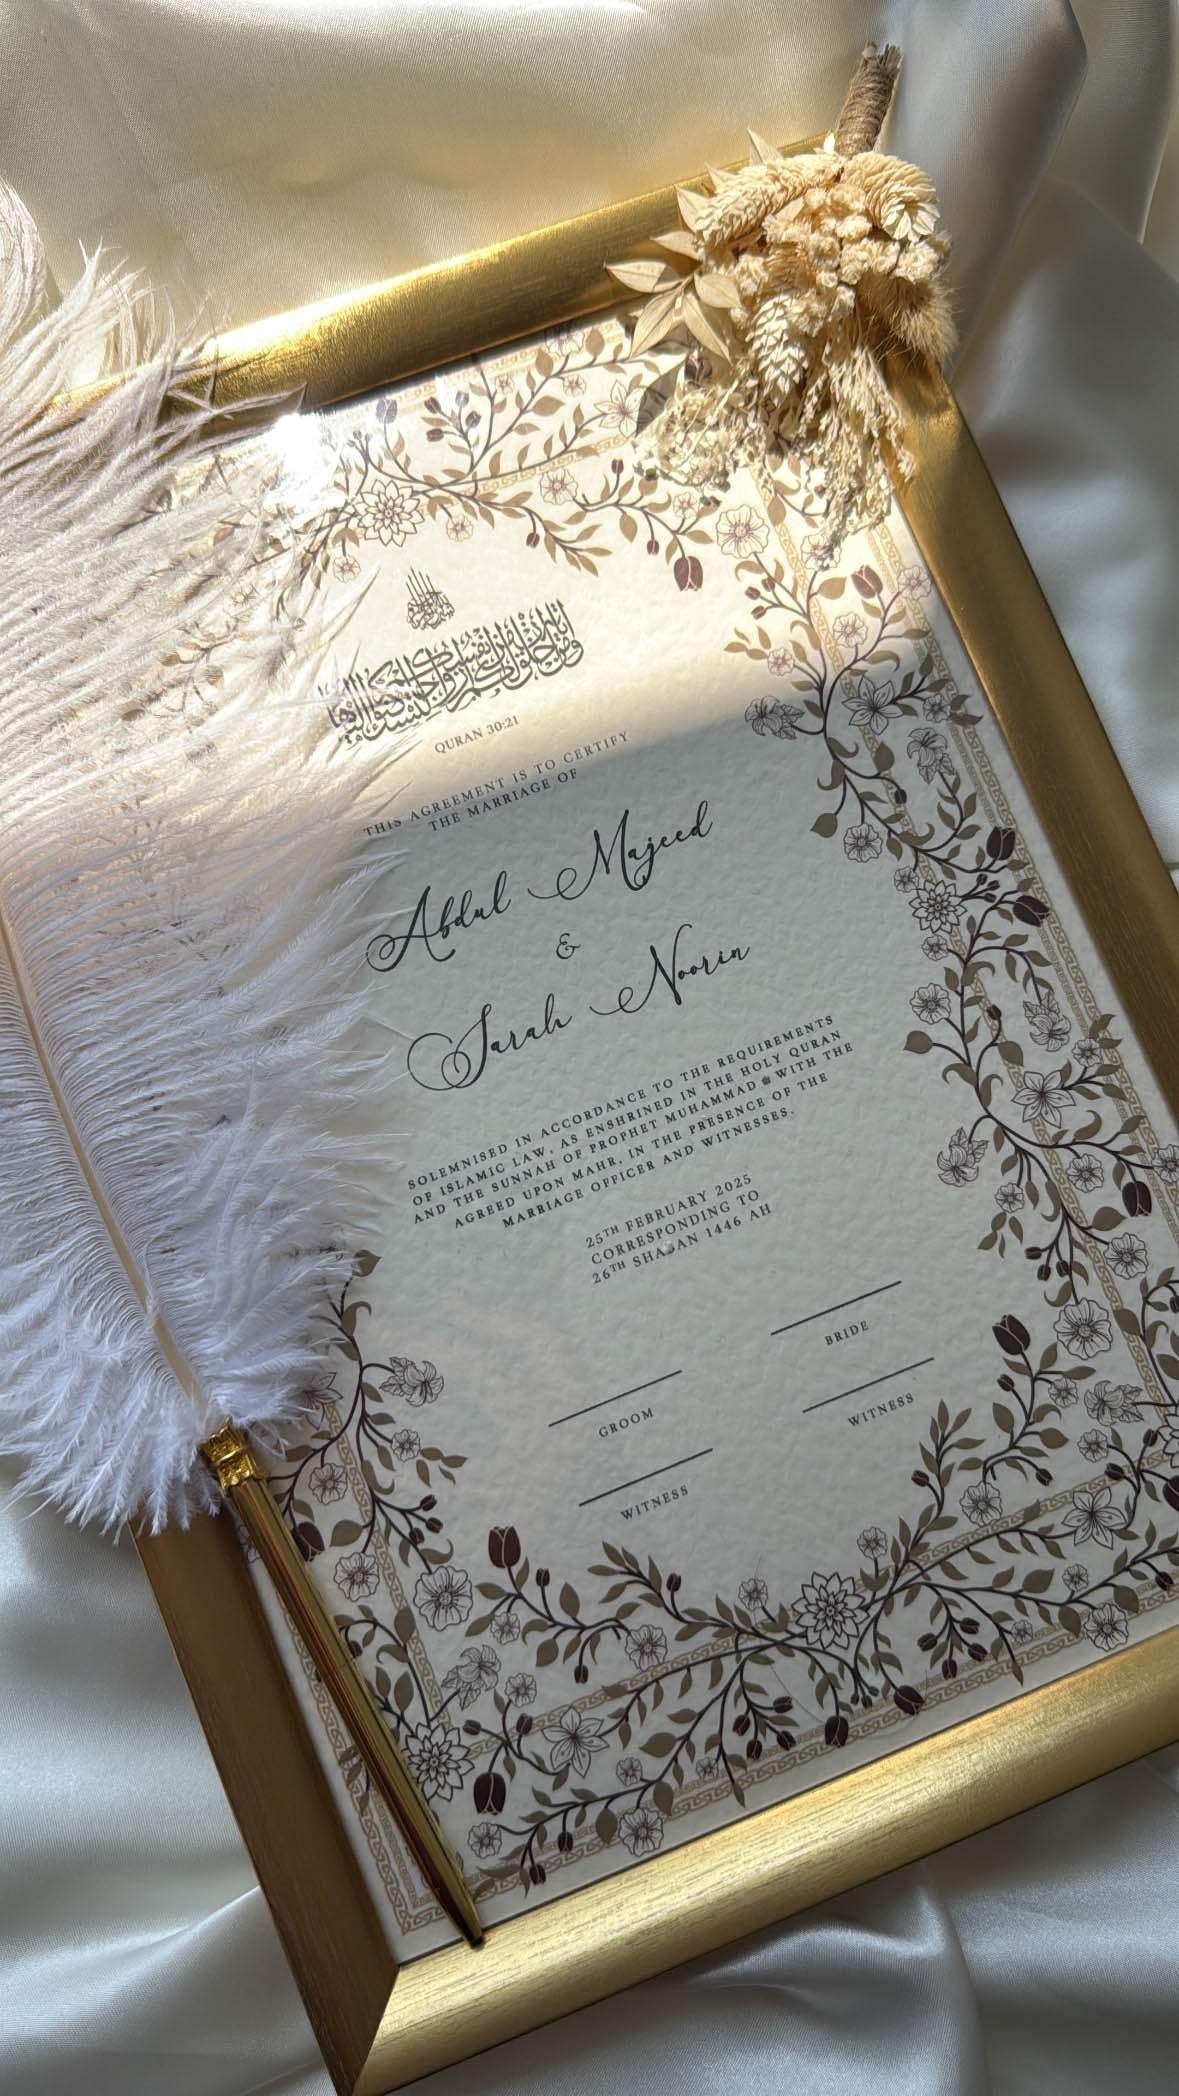 بسم الله الرحمن الرحيم
ومن آياته أن خلق لكم من أنفسكم أزواجا لتسكنوا إليها
QURAN 30:21
THIS AGREEMENT IS TO CERTIFY
THE MARRIAGE OF
Abdul Majeed
&
Sarah Noorin
SOLEMNISED IN ACCORDANCE TO THE REQUIREMENTS
OF ISLAMIC LAW, AS ENSHRINED IN THE HOLY QURAN
AND THE SUNNAH OF PROPHET MUHAMMAD ﷺ WITH THE
AGREED UPON MAHR, IN THE PRESENCE OF THE
MARRIAGE OFFICER AND WITNESSES.
25TH FEBRUARY 2025
CORRESPONDING TO
26TH SHABAN 1446 AH
GROOM
BRIDE
WITNESS
WITNESS